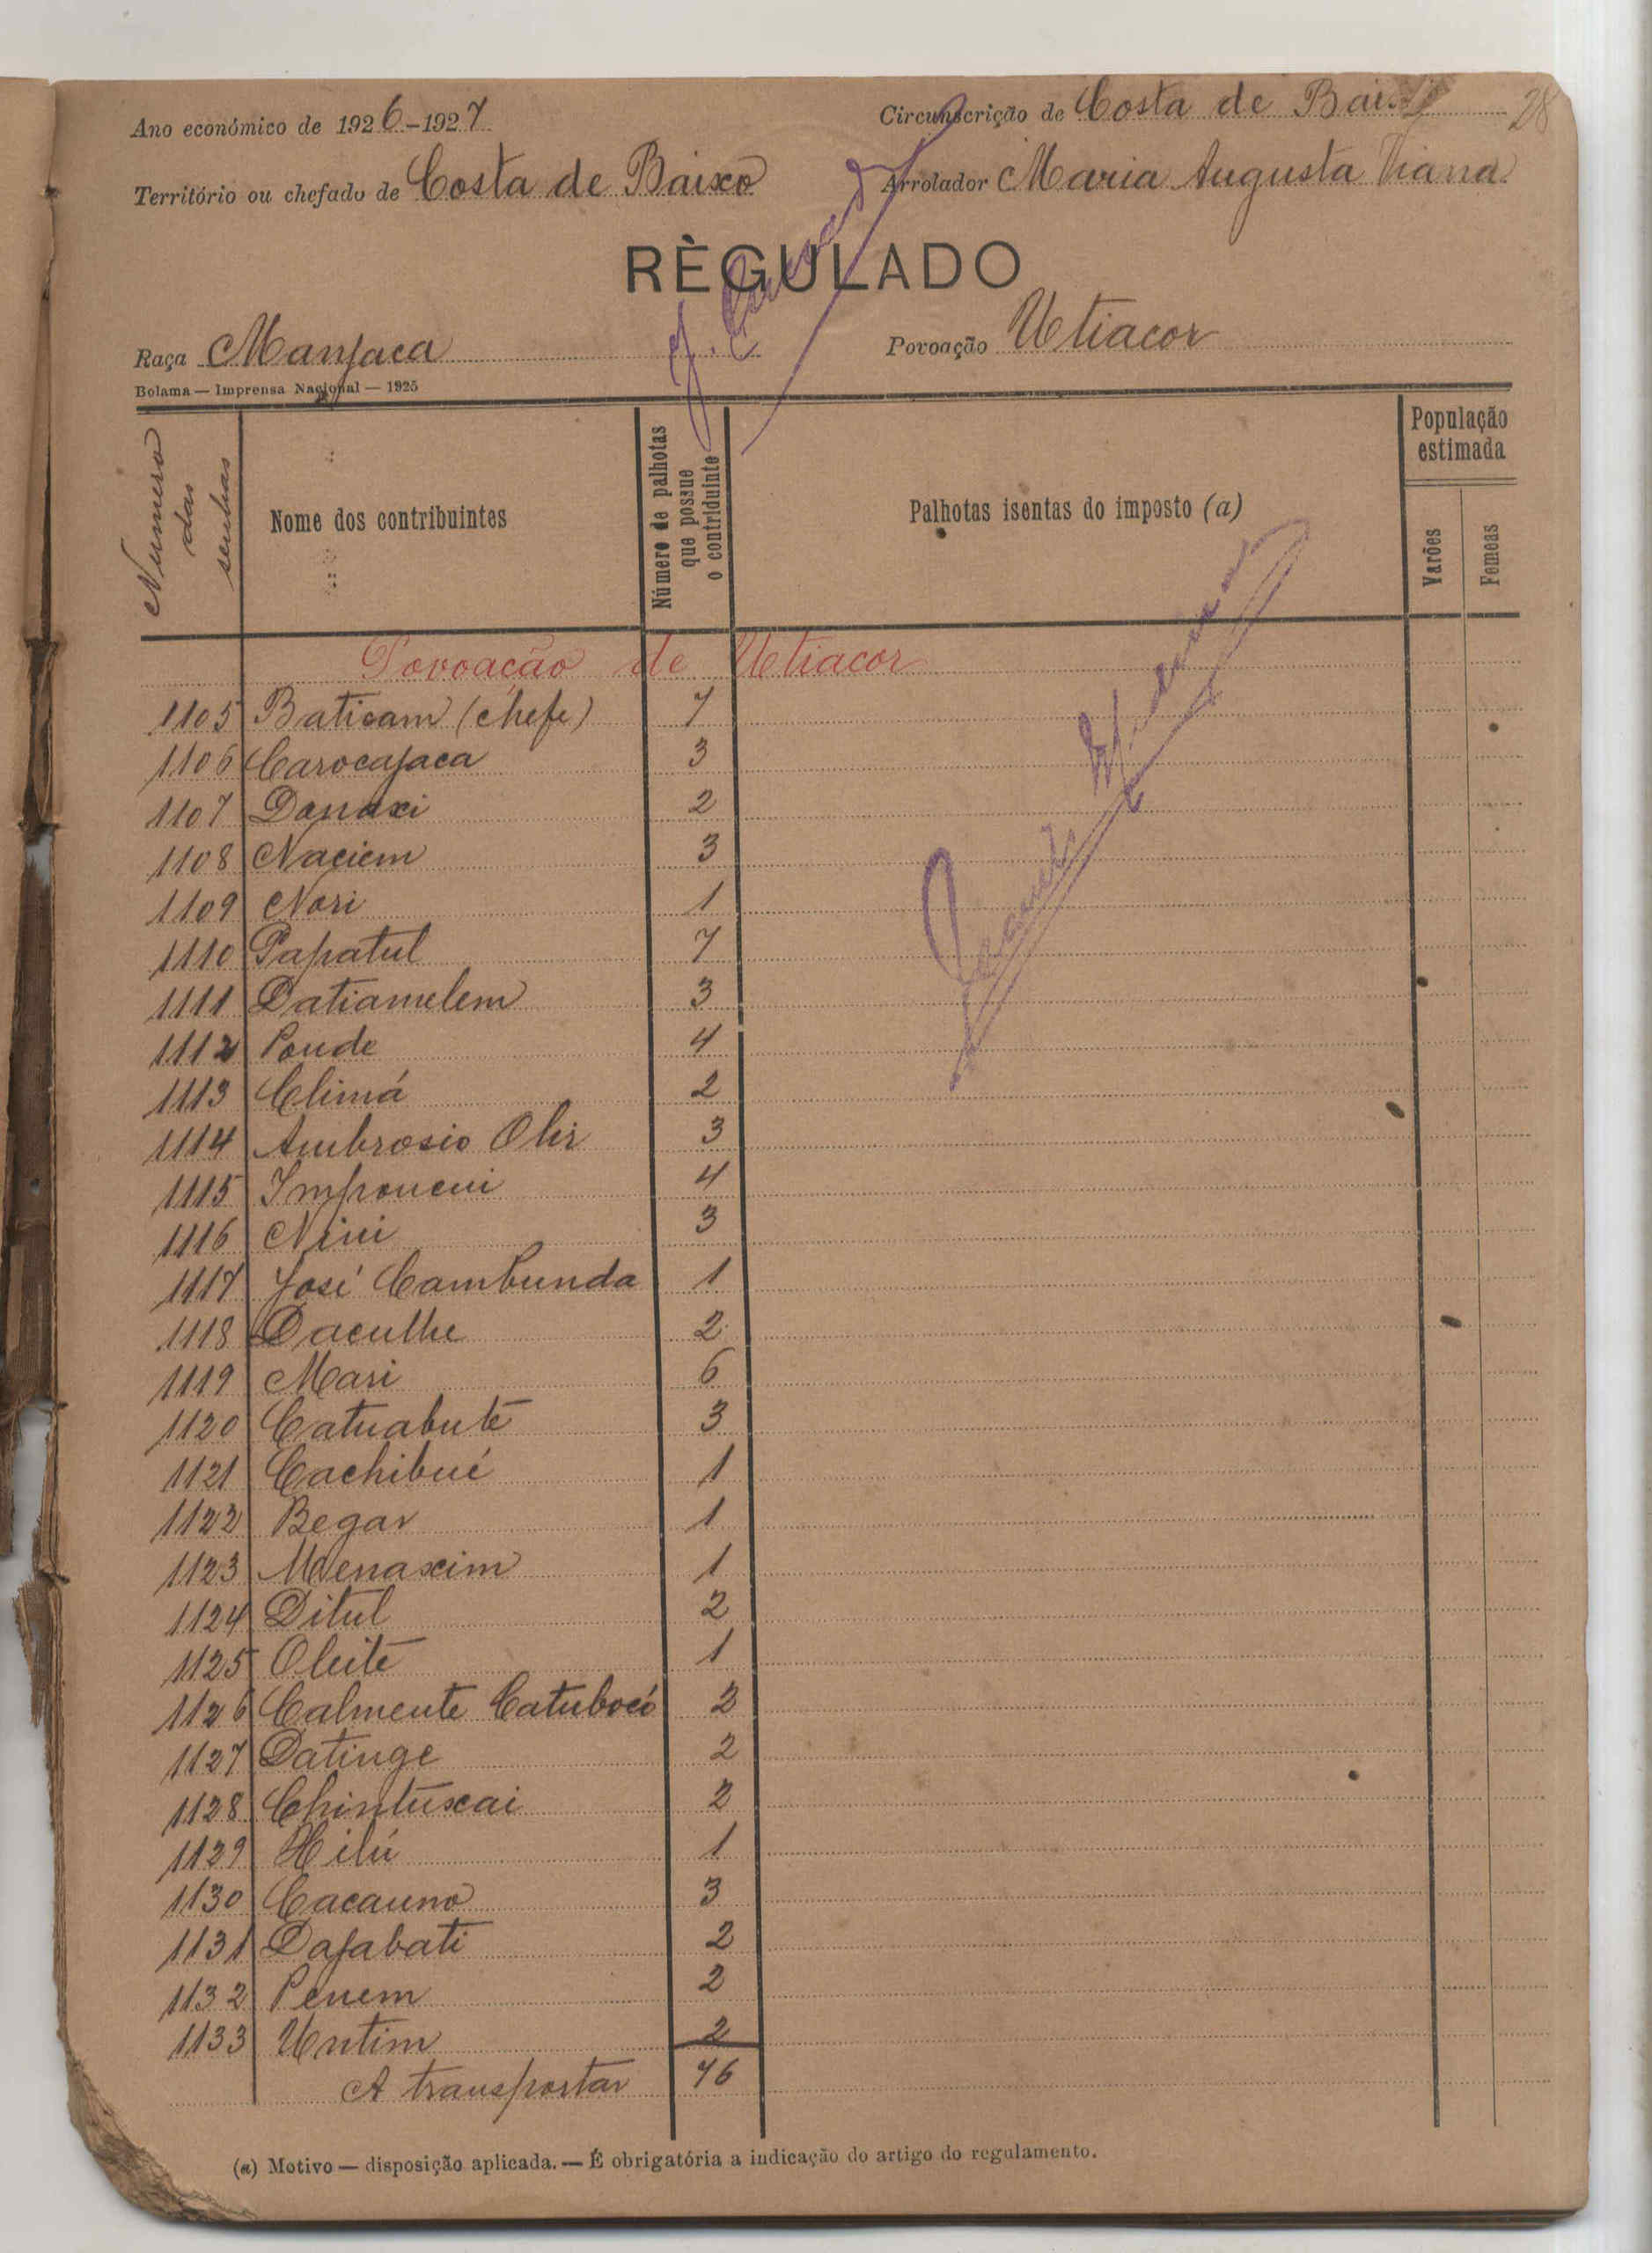 28
Ano económico de 1926-1927 Circunscrição de Costa de Baixo
Território ou chefado de Costa de Baixo Arrolador Maria Augusta Viana
RÈGULADO
Raça Manjaca Povoação Utiacor
Bolama — Imprensa Nacional — 1925
Numero das senhas
Nome dos contribuintes
Número de palhotas que possue o contriduinte
Palhotas isentas do imposto (a)
População estimada
Varões
Femeas
Povoação de Utiacor
1105 Baticam (chefe) 7
1106 Carocajaca 3
1107 Danaxi 2
1108 Naciem 3
1109 Nori 1
1110 Papatul 7
1111 Datiamelem 3
1112 Poude 4
1113 Climá 2
1114 Ambrosio Olir 3
1115 Imponcui 4
1116 Nini 3
1117 José Cambunda 1
1118 Daculhe 2
1119 Mari 6
1120 Catuabute 3
1121 Cachibué 1
1122 Begar 1
1123 Menaxim 1
1124 Ditul 2
1125 Oleite 1
1126 Calmente Catubocó 2
1127 Datinge 2
1128 Chintuscai 2
1129 Hilú 1
1130 Cacauno 3
1131 Dajabati 2
1132 Penem 2
1133 Untim 2
A transportar 76
(a) Motivo — disposição aplicada. — É obrigatória a indicação do artigo do regulamento.